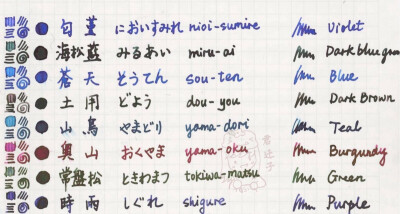 匂菫 においすみれ nioi-sumire Violet
海松藍 みるあい miru-ai Dark blue green
蒼天 そうてん sou-ten Blue
土用 どよう dou-you Dark Brown
山鳥 やまどり yama-dori Teal
奥山 おくやま yama-oku Burgundy
常盤松 ときわまつ tokiwa-matsu Green
時雨 しぐれ shigure Purple